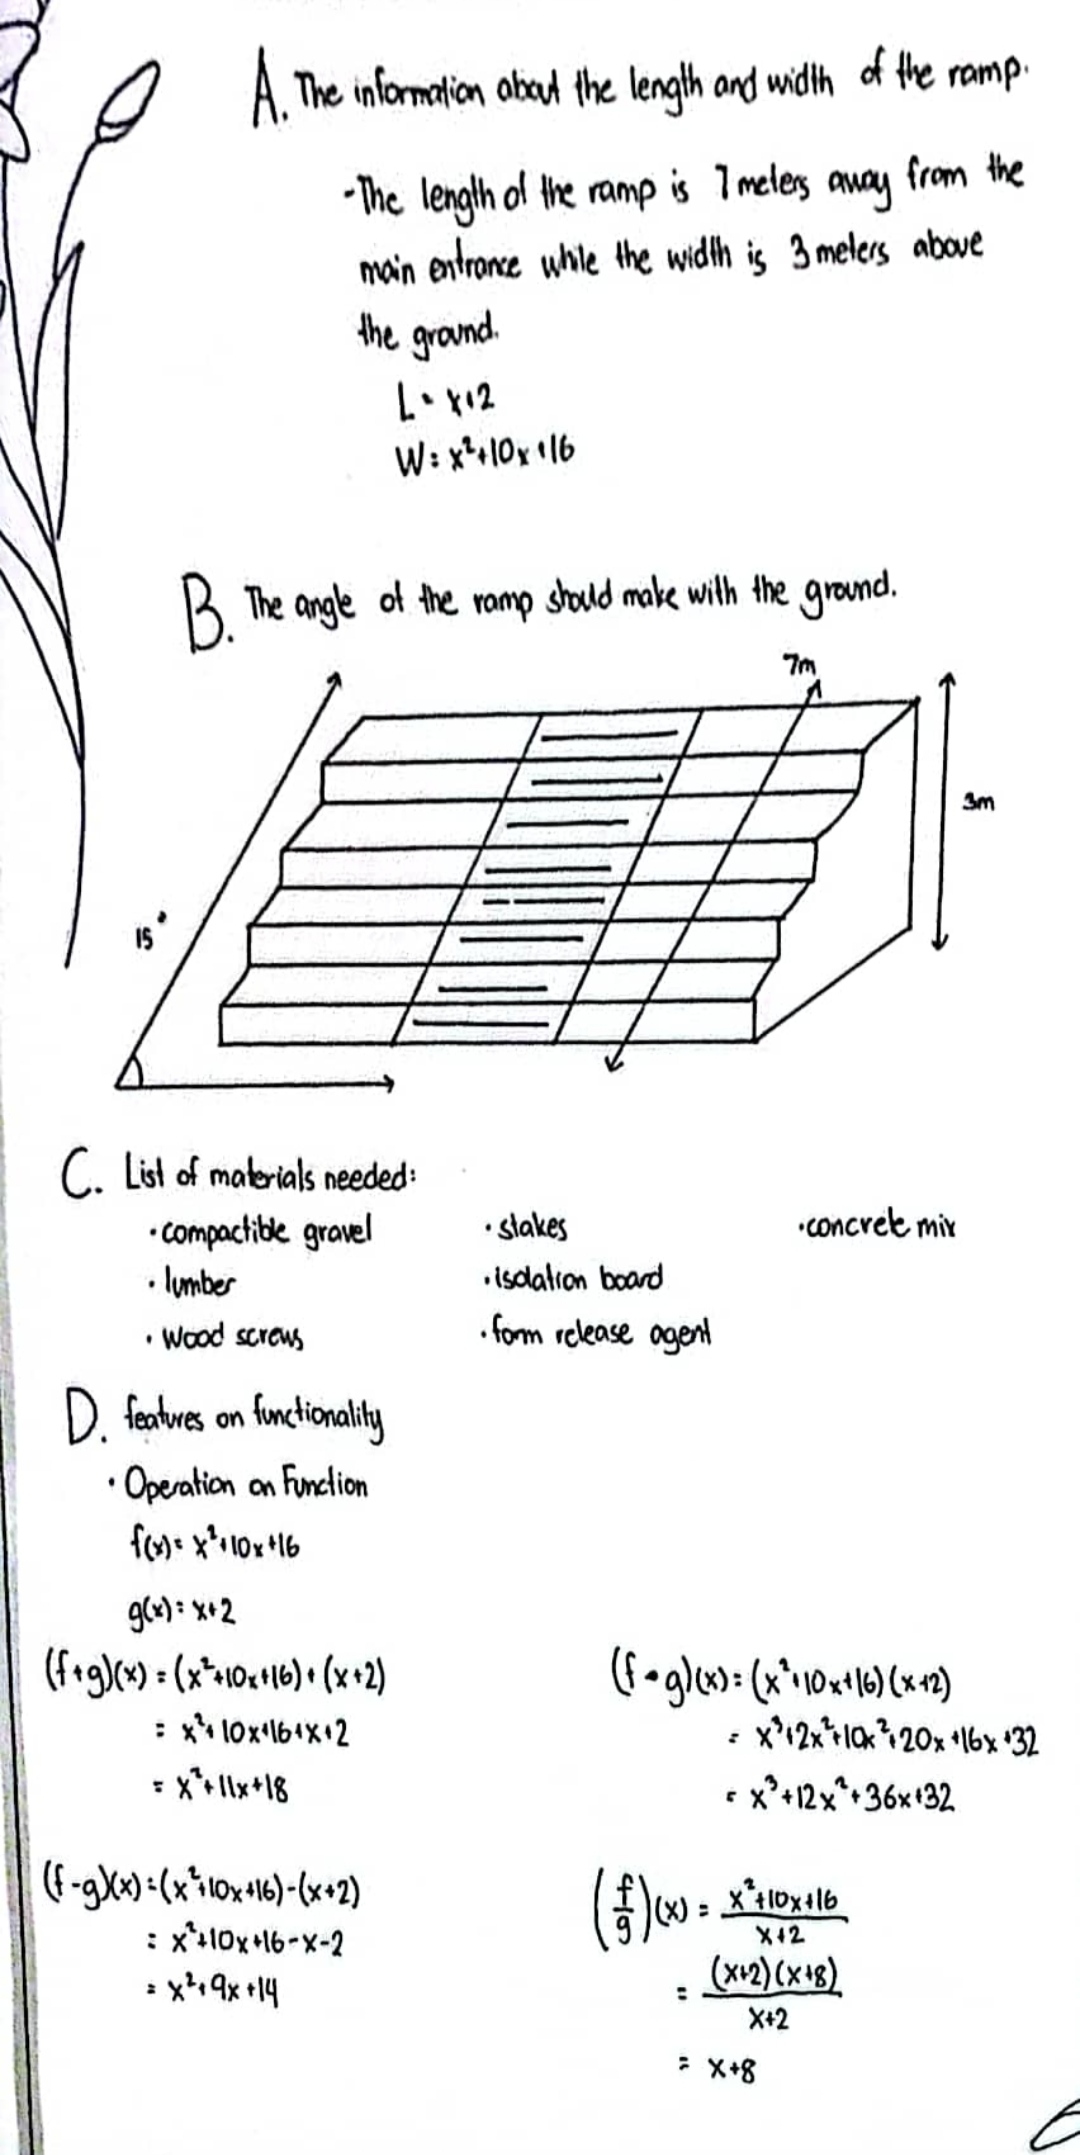 A. The information about the length and width of the ramp.
-The length of the ramp is 7 meters away from the
main entrance while the width is 3 meters above
the ground.
L = x+2
W = x²+10x+16
B. The angle of the ramp should make with the ground.
7m
3m
15°
C. List of materials needed:
• compactible gravel • stakes • concrete mix
• lumber • isolation board
• wood screws • form release agent
D. features on functionality
• Operation on Function
f(x) = x²+10x+16
g(x) = x+2
(f+g)(x) = (x²+10x+16)+(x+2)
= x²+10x+16+x+2
= x²+11x+18
(f•g)(x) = (x²+10x+16)(x+2)
= x³+2x²+10x²+20x+16x+32
= x³+12x²+36x+32
(f-g)(x) = (x²+10x+16)-(x+2)
= x²+10x+16-x-2
= x²+9x+14
(f/g)(x) = x²+10x+16 / x+2
= (x+2)(x+8) / x+2
= x+8